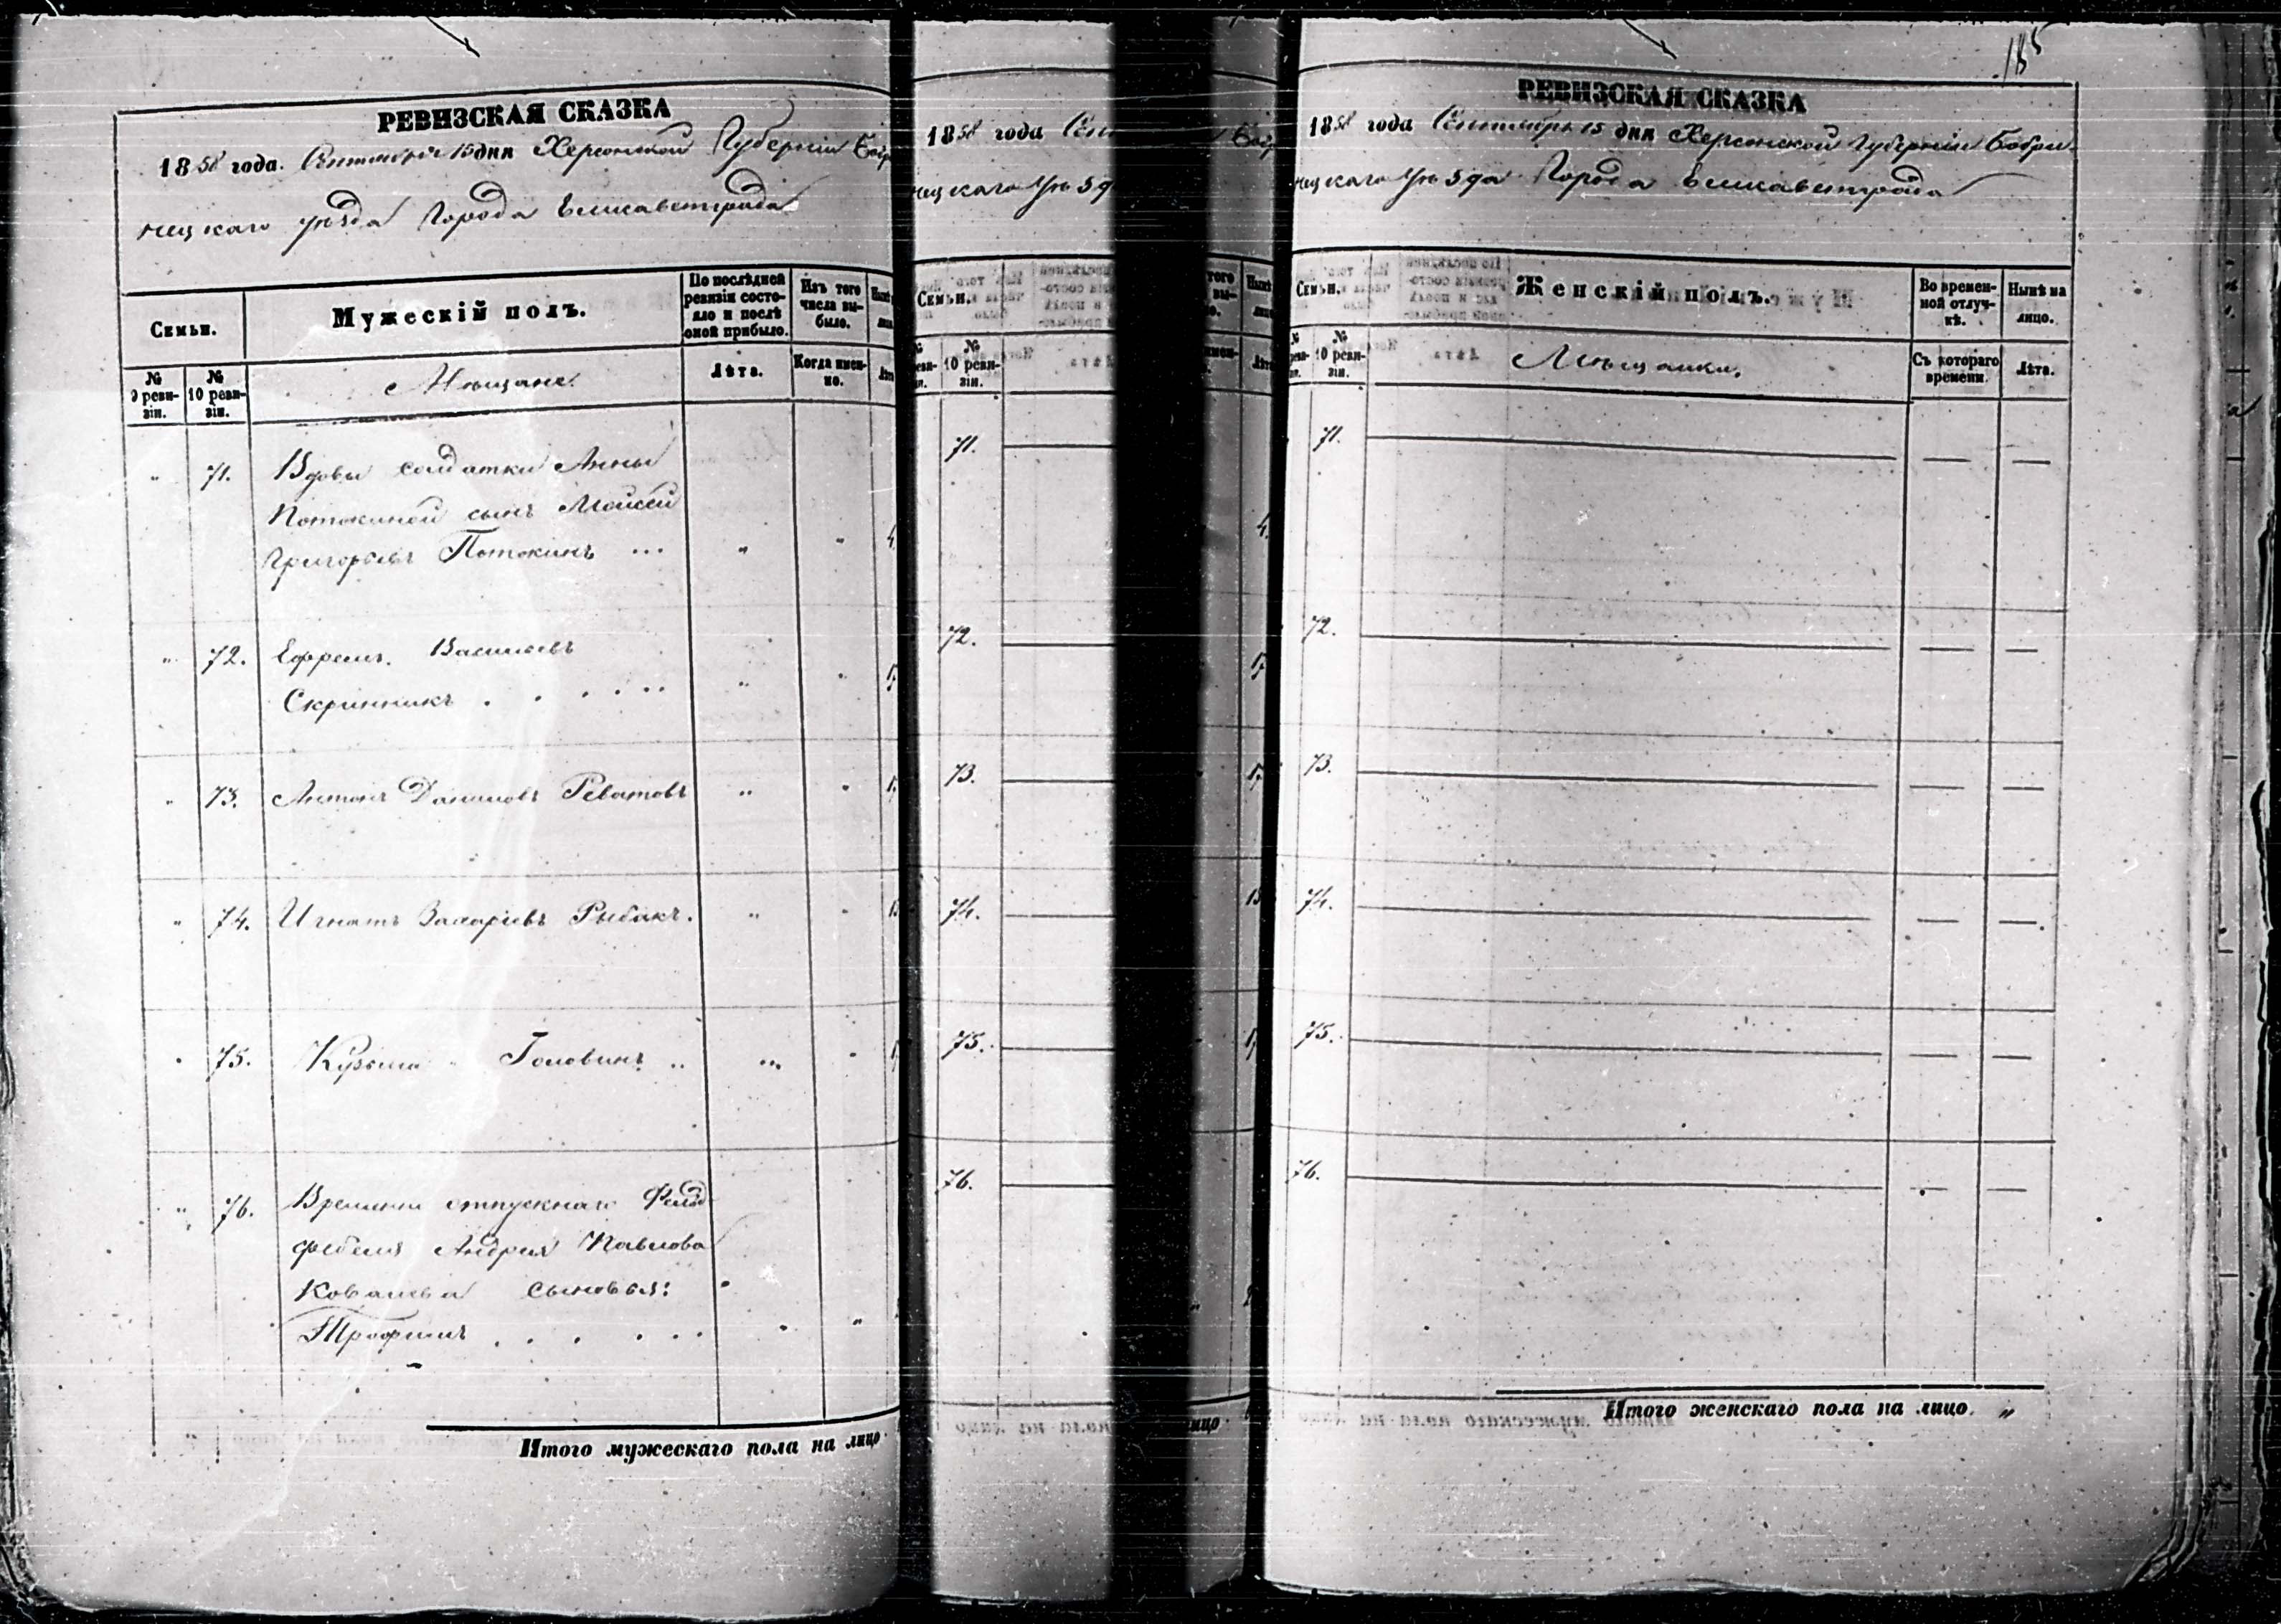 РЕВИЗСКАЯ СКАЗКА
1858 года. Сентября 15 дня Херсонской Губерніи Бобр
нецкаго уѣзда Города Елисаветграда
Семьи.
Мужескій полъ.
По послѣдней ревизіи состояло и послѣ оной прибыло.
Изъ того числа выбыло.
№ 9 ревизіи.
№ 10 ревизіи.
Мѣщане.
Лѣта.
Когда именно.
" 71. Вдовы солдатки Анны
Потокиной сынъ Моисей
Григорьевъ Потокинъ ... " "
" 72. Ефремъ. Васильевъ
Скрынникъ . . . . . . " "
" 73. Антонъ Даниловъ Реватовъ " "
" 74. Игнатъ Захарьевъ Рыбакъ. " "
" 75. Кузьма " Головинъ .. " "
" 76. Временно отпускнаго Фельд
фебеля Андрея Павлова
Ковалева сыновья:
Трофимъ . . . . . . " "
Итого мужескаго пола на лицо
1858 года Сен
нецкаго Уѣзда
Семьи.
№ 10 ревизіи.
71.
72.
73.
74.
75.
76.
185
РЕВИЗСКАЯ СКАЗКА
1858 года Сентября 15 дня Херсонской Губерніи Бобри-
нецкаго Уѣзда Города Елисаветграда
Семьи.
Женскій полъ.
Во временной отлучкѣ.
Нынѣ на лицо.
№ 10 ревизіи.
Мѣщанки.
Съ котораго времени.
Лѣта.
71. — — —
72. — — —
73. — — —
74. — — —
75. — — —
76. — — —
Итого женскаго пола на лицо. "